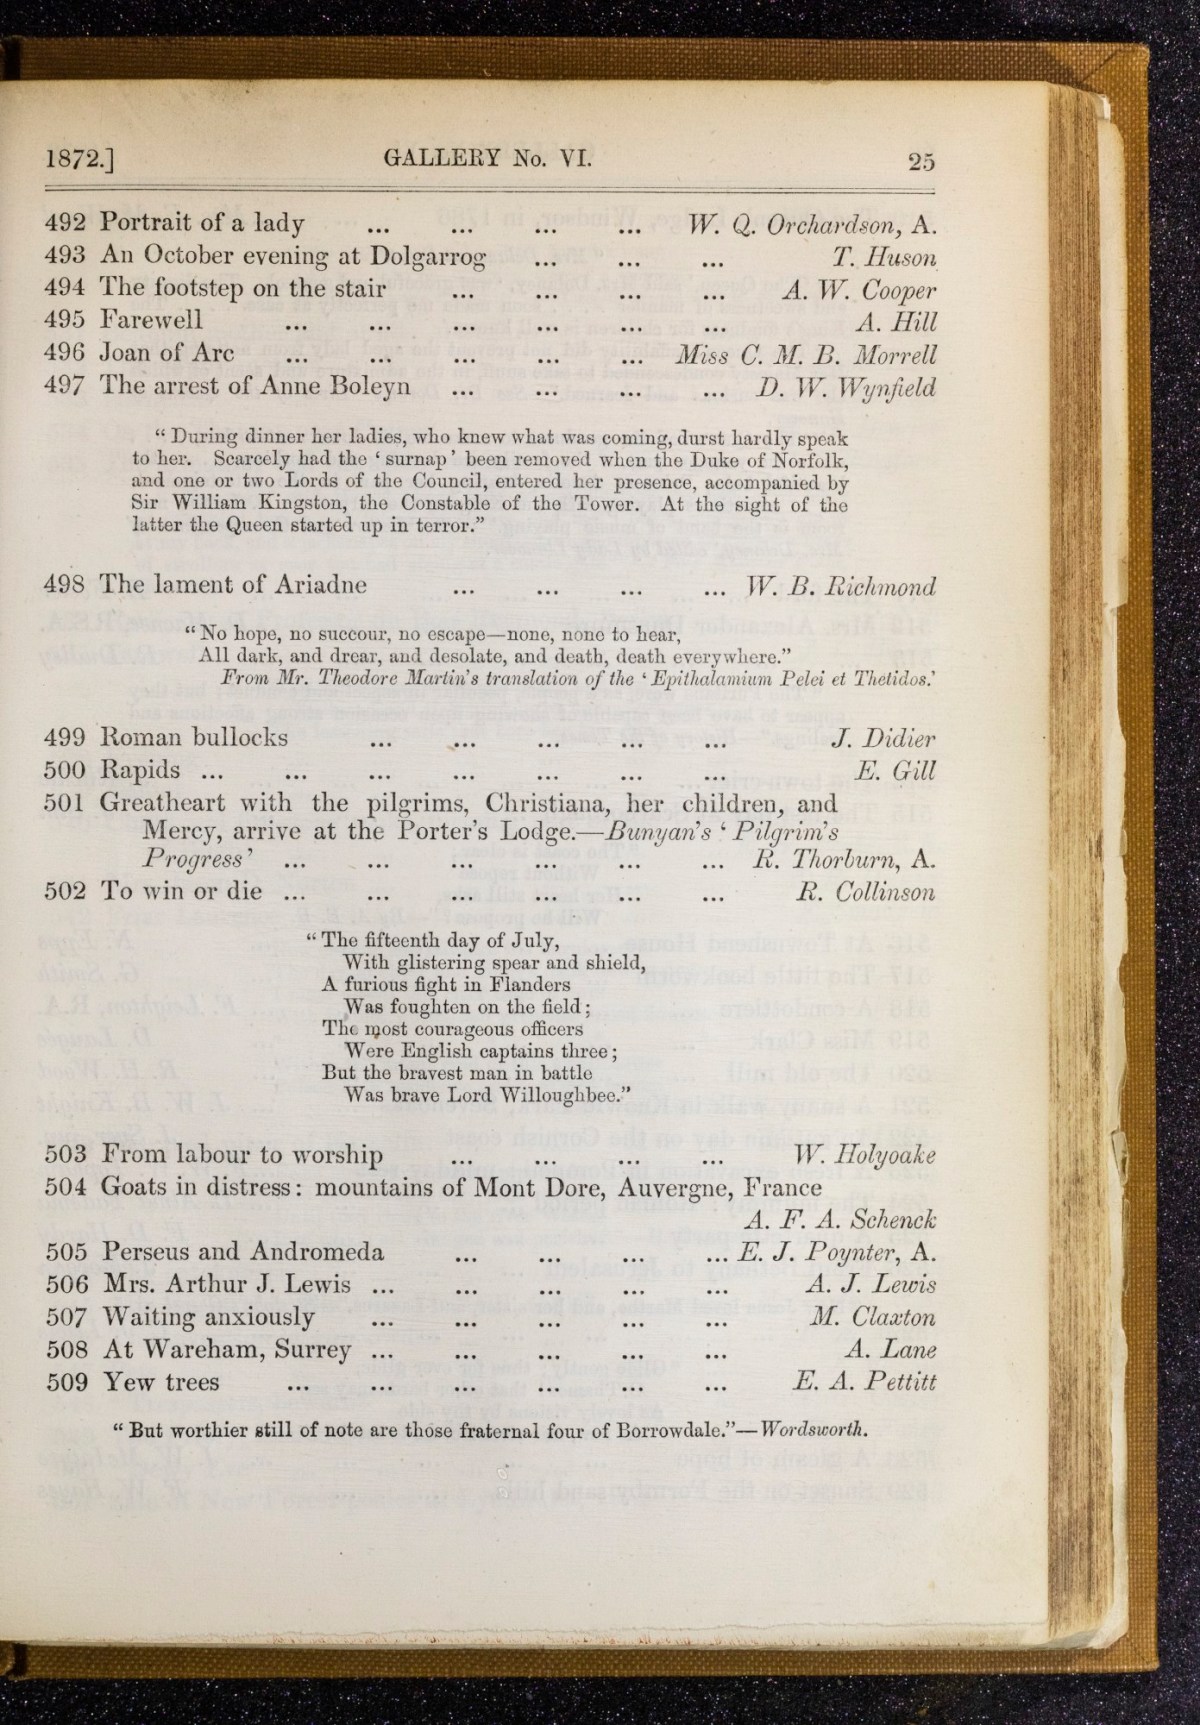 1872.] GALLERY No. VI. 25
492 Portrait of a lady ... ... ... ... W. Q. Orchardson, A.
493 An October evening at Dolgarrog ... ... ... T. Huson
494 The footstep on the stair ... ... ... ... A. W. Cooper
495 Farewell ... ... ... ... ... ... A. Hill
496 Joan of Arc ... ... ... ... ... Miss C. M. B. Morrell
497 The arrest of Anne Boleyn ... ... ... ... D. W. Wynfield
“ During dinner her ladies, who knew what was coming, durst hardly speak
to her. Scarcely had the ‘ surnap ’ been removed when the Duke of Norfolk,
and one or two Lords of the Council, entered her presence, accompanied by
Sir William Kingston, the Constable of the Tower. At the sight of the
latter the Queen started up in terror.”
498 The lament of Ariadne ... ... ... ... W. B. Richmond
“ No hope, no succour, no escape—none, none to hear,
All dark, and drear, and desolate, and death, death everywhere.”
From Mr. Theodore Martin's translation of the ‘ Epithalamium Pelei et Thetidos.’
499 Roman bullocks ... ... ... ... ... J. Didier
500 Rapids ... ... ... ... ... ... ... E. Gill
501 Greatheart with the pilgrims, Christiana, her children, and
Mercy, arrive at the Porter's Lodge.—Bunyan's ‘ Pilgrim's
Progress ’ ... ... ... ... ... ... R. Thorburn, A.
502 To win or die ... ... ... ... ... ... R. Collinson
“ The fifteenth day of July,
With glistering spear and shield,
A furious fight in Flanders
Was foughten on the field ;
The most courageous officers
Were English captains three ;
But the bravest man in battle
Was brave Lord Willoughbee.”
503 From labour to worship ... ... ... ... W. Holyoake
504 Goats in distress : mountains of Mont Dore, Auvergne, France
A. F. A. Schenck
505 Perseus and Andromeda ... ... ... ... E. J. Poynter, A.
506 Mrs. Arthur J. Lewis ... ... ... ... ... A. J. Lewis
507 Waiting anxiously ... ... ... ... ... M. Claxton
508 At Wareham, Surrey ... ... ... ... ... A. Lane
509 Yew trees ... ... ... ... ... ... E. A. Pettitt
“ But worthier still of note are those fraternal four of Borrowdale.”—Wordsworth.